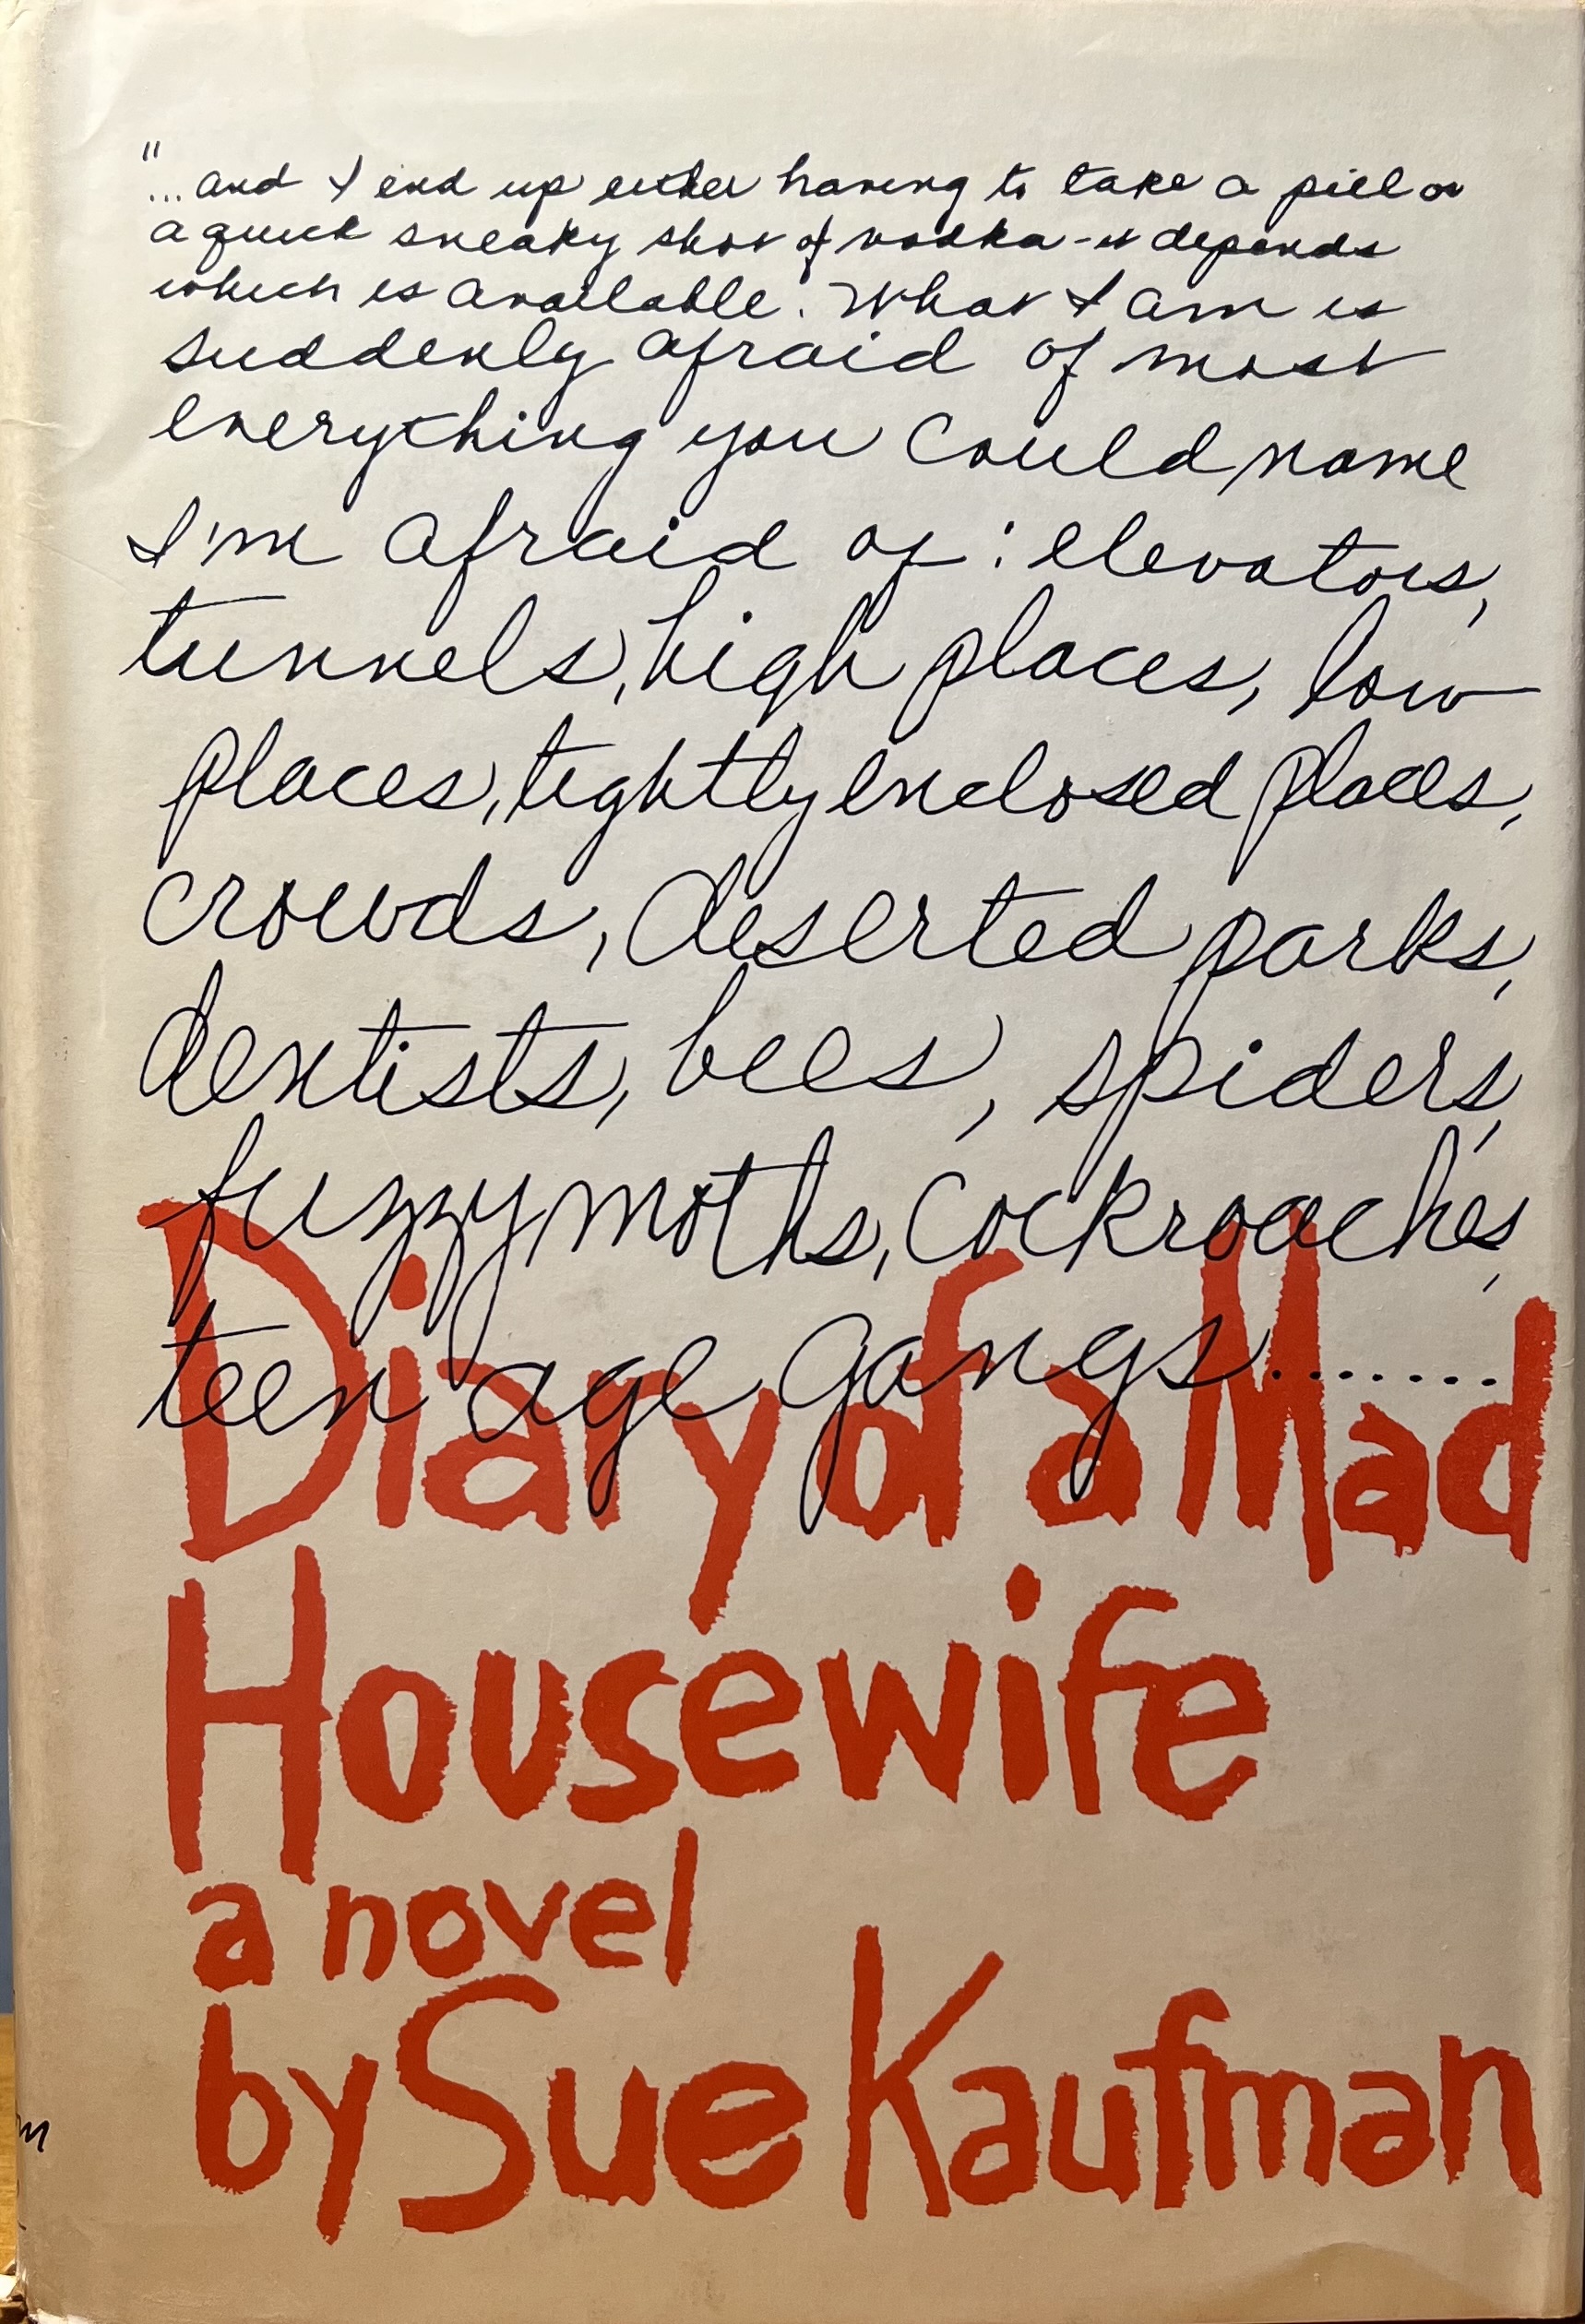 "...and I end up either having to take a pill or
a quick sneaky shot of vodka - it depends
which is available. What I am is
suddenly afraid of most
everything you could name
I'm afraid of: elevators,
tunnels, high places, low
places, tightly enclosed places,
crowds, deserted parks,
dentists, bees, spiders,
fuzzy moths, cockroaches,
teen age gangs.......
Diary of a Mad
Housewife
a novel
by Sue Kaufman